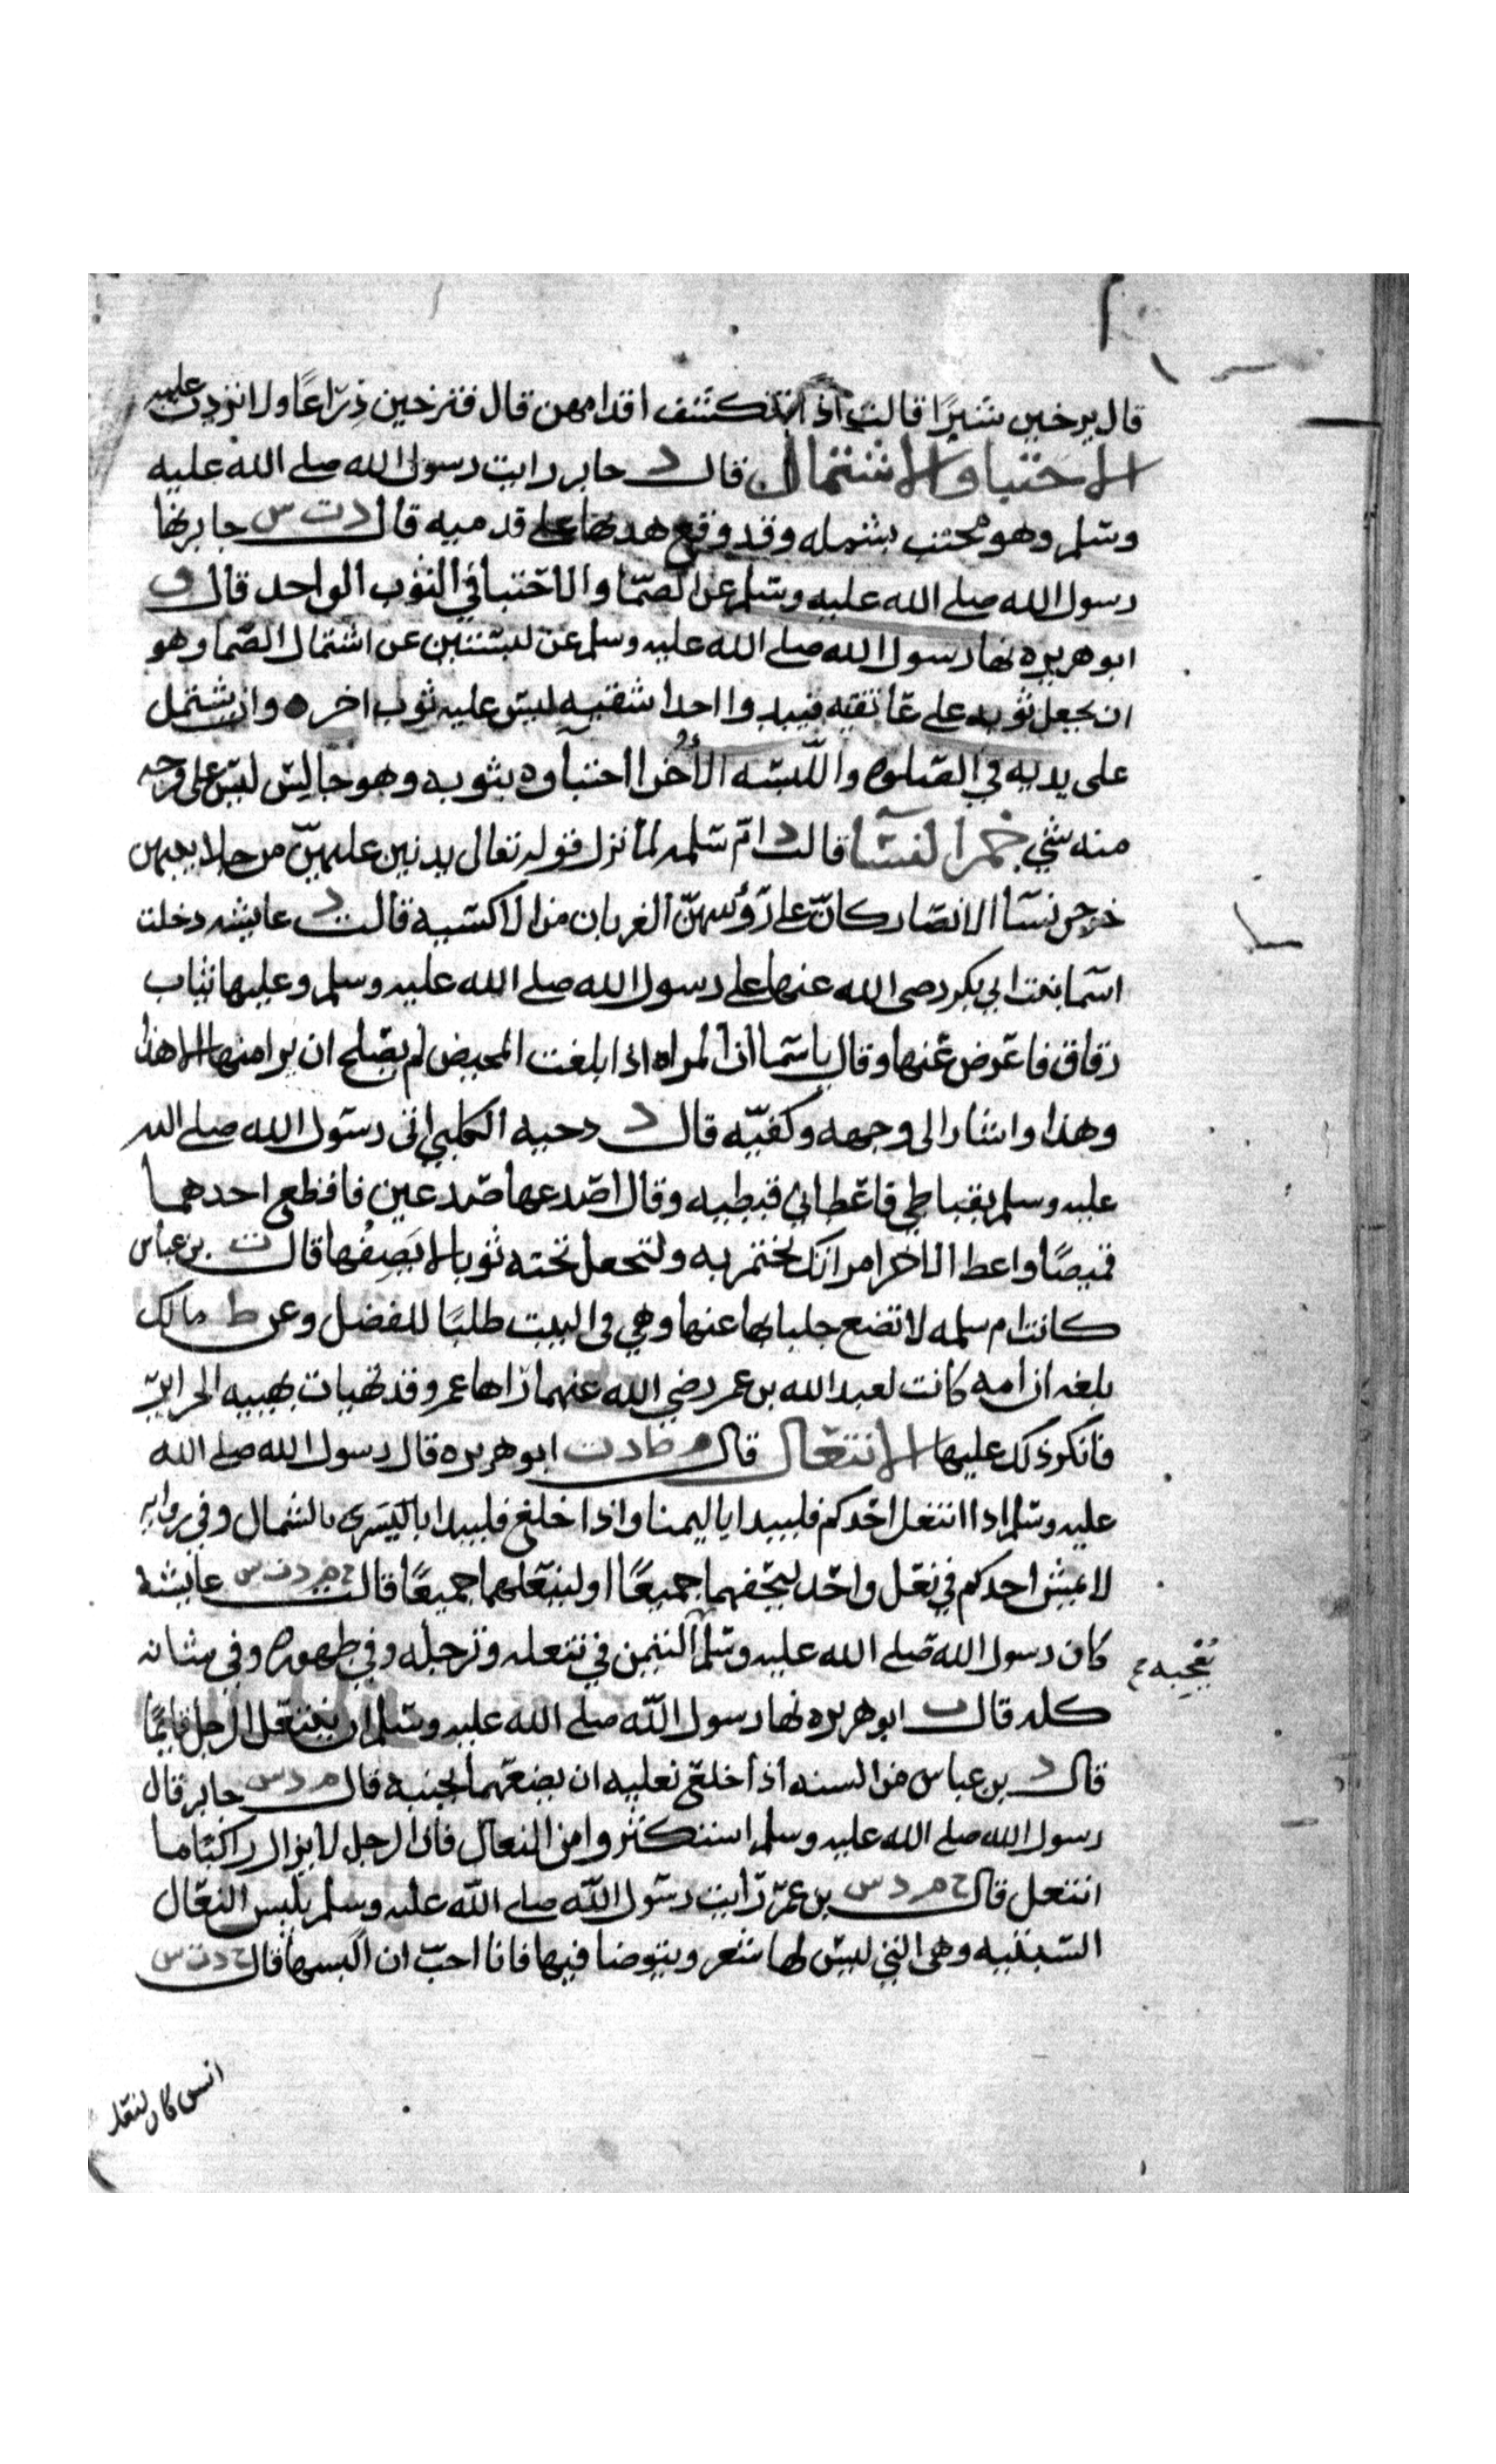 قال يرخين شبرًا قالت اذًا تنكشف اقدامهن قال فترخين ذراعًا ولا تزدن عليه
الاحتبا والاشتمال قال د جابر رايت رسول الله صلى الله عليه
وسلم وهو محتب بشمله وقد وقع هدبها على قدميه قال د ت س جابر نها
رسول الله صلى الله عليه وسلم عن الصما والاحتبا في الثوب الواحد قال ق
ابو هريره نها رسول الله صلى الله عليه وسلم عن لبستين عن اشتمال الصما وهو
ان يجعل ثوبه على عاتقيه فيبدوا احدا شقيه ليس عليه ثوب اخره وان يشتمل
على يديه في الصلوه واللبسه الأخرا احتباوه بثوبه وهو جالس ليس على فرجه
منه شي خمر النسا قالت د ام سلمه لما نزل قوله تعالى يدنين عليهنّ من جلابيبهن
خرجن نسا الانصار كانّ على رؤسهنّ الغربان من الاكسيه قالت د عايشه دخلت
اسما بنت ابي بكر رضى الله عنها على رسول الله صلى الله عليه وسلم وعليها ثياب
رقاق فاعرض عنها وقال ياسما ان المراه اذا بلغت المحيض لم يصلح ان يرا منها الا هذا
وهذا واشار الى وجهه وكفيّه قال د دحيه الكلبي اتى رسول الله صلى الله
عليه وسلم بقباطي فاعطاني قبطيه وقال اصدعها صدعين فاقطع احدهما
قميصًا واعط الاخر امراتك تختمر به ولتجعل تحته ثوبا لا يَصِفُها قال ت بن عباس
كانت ام سلمه لا تضع جلبابها عنها وهي في البيت طلبًا للفضل وعن ط مالك
بلغه ان امه كانت لعبد الله بن عمر رضي الله عنهما راها عمر وقد تهيات بهييه الحراير
فانكر ذلك عليها الانتعال قال م ط د ت ابو هريره قال رسول الله صلى الله
عليه وسلم اذا انتعل احدكم فليبدا باليمنا واذا خلع فليبدا باليسرى بالشمال وفي روايه
لا يمش احدكم في نعل واحد ليحفهما جميعًا او لينعلهما جميعًا قالت خ م د ت س عايشه
كان رسول الله صلى الله عليه وسلم التيمن في تنعله وترجله وفي طهوره وفي شانه
يُعجبه ع
كله قال ت ابو هريره نها رسول الله صلى الله عليه وسلم ان ينتعل الرجل قايمًا
قال د بن عباس من السنه اذا خلع نعليه ان يضعهما بجنبه قال م د س جابر قال
رسول الله صلى الله عليه وسلم استكثروا من النعال فان الرجل لا يزال راكبًا ما
انتعل قال خ م د س بن عمر رايت رسول الله صلى الله عليه وسلم يلبس النعال
السبتيه وهى التي ليس لها شعر ويتوضا فيها فانا احبّ ان البسها قال خ د ت س
انس كان لنعل